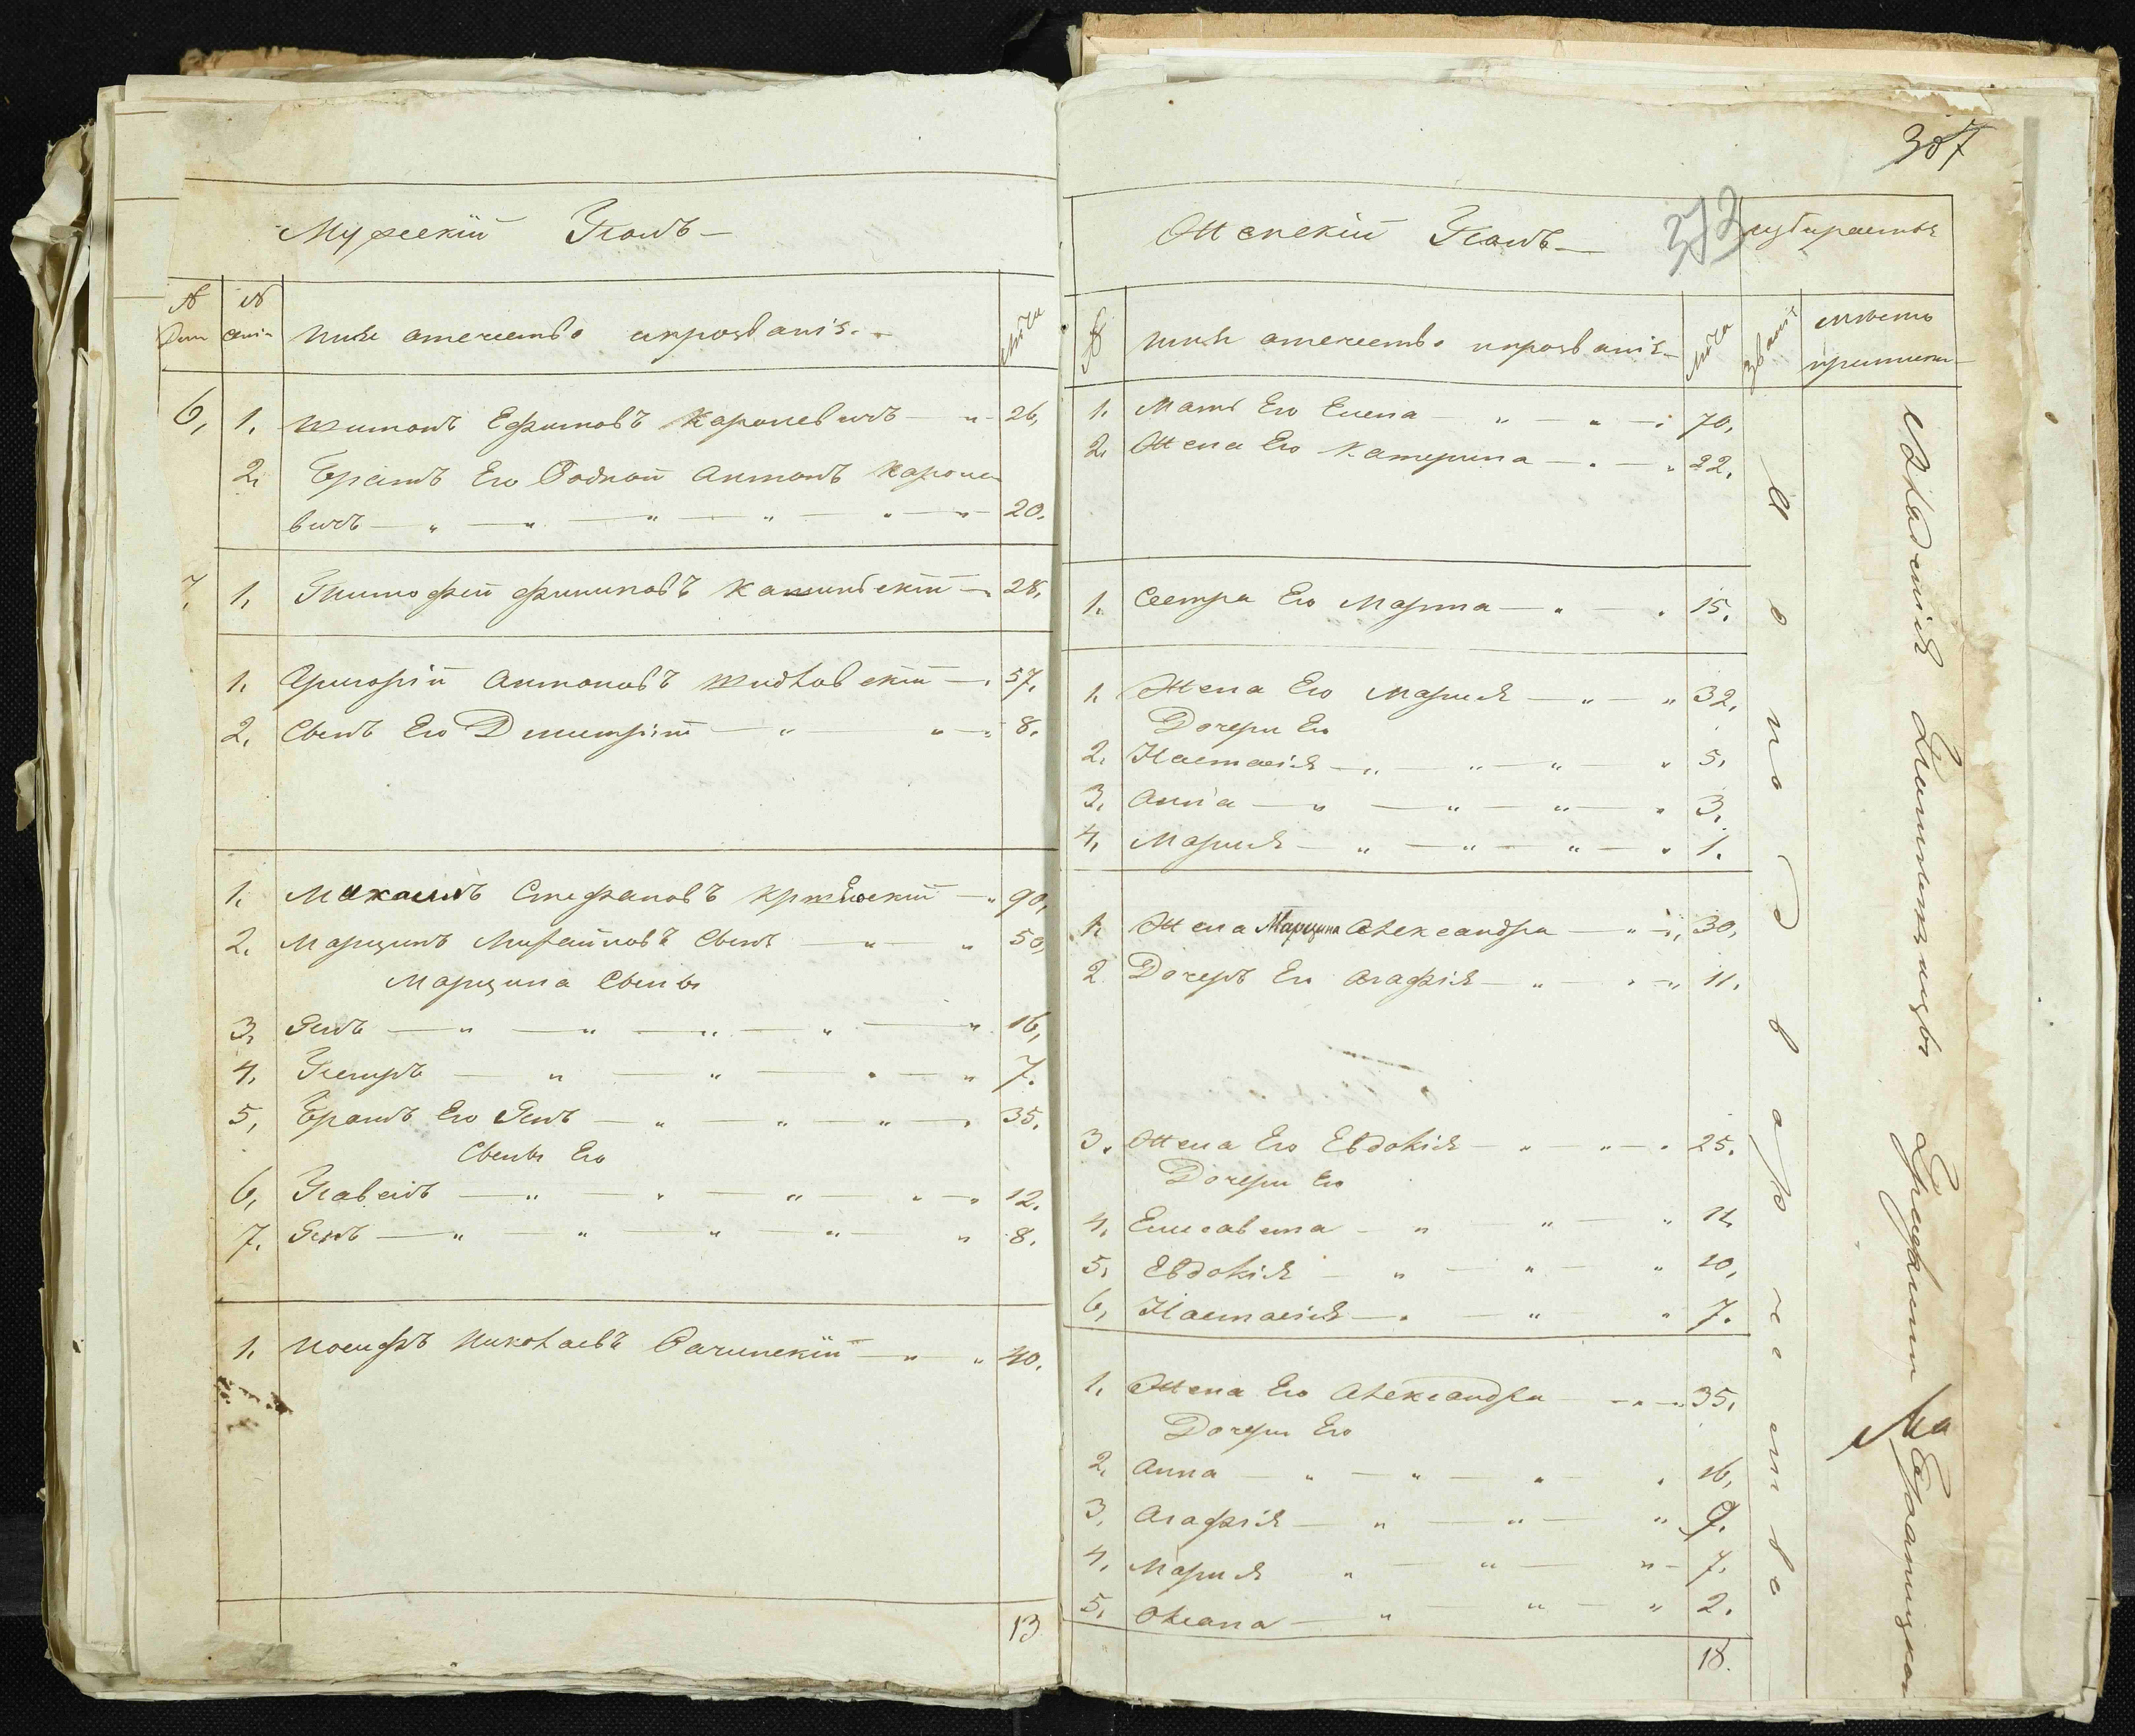 Мужескій Полъ
№ Дом
№ семи
имя отечество ипрозваніе
лѣта
6, 1. Шимонъ Ефимовъ Каролевичъ 26,
2, Братъ Его Родной Антонъ Кароле
вичъ 20.
7, 1, Тимофей Филиповъ Калинскій 28,
1. Григорій Антоновъ Жидковскій 57.
2. Сынъ Его Дмитрій 8.
1. Михаилъ Стефановъ 90,
2. Марцинъ Михайловъ Сынъ 50,
Марцина Сыны
3, Янъ 16,
4, Петръ 7.
5, Братъ Его Янъ 35.
Сыны Его
6, Павелъ 12.
7. Янъ 8.
1. Иосифъ Николаевъ Рачинскій 40.
13
307
373
Женскій Полъ
избирается
№
имя отечество ипрозваніе
лѣта
званіе
мѣсто
приписки
1. Мать Его Елена 70,
2. Жена Его Катерина 22.
1. Сестра Его Марта 15.
1. Жена Его Мария 32,
Дочери Его
2. Настасія 5,
3. Анна 3,
4, Мария 1.
1. Жена Марцина Александра 30,
2 Дочерь Ея Агафія 11.
3. Жена Его Евдокія 25.
Дочери Его
4, Елисавета 12
5, Евдокія 10,
6, Настасія 7.
1. Жена Его Александра 35,
Дочери Его
2. Анна 16,
3, Агафія 9.
4, Мария 7.
5. Оксана 2.
18.
однодворчество